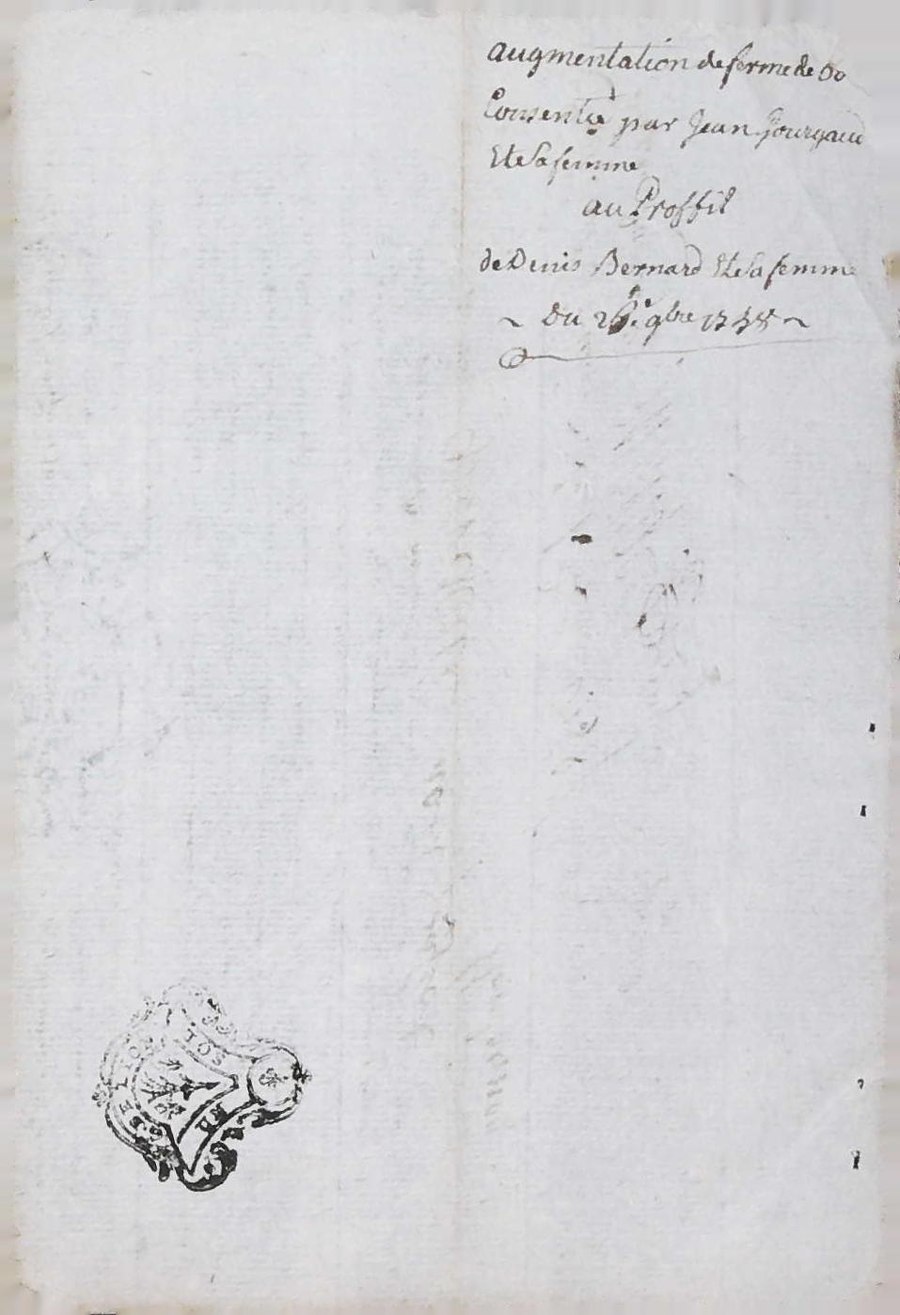 augmentation de ferme de
Consentie par Jean Gourgaud
Et Sa femme
au Proffit
de Denis Bernard Et Sa femme
Du 26.e 9bre